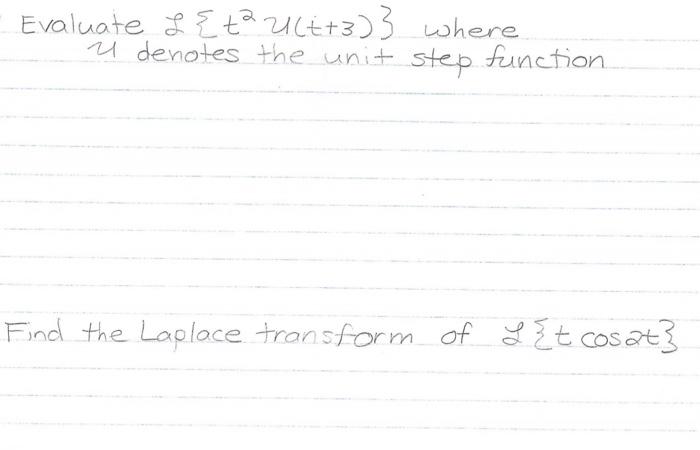 Evaluate ℒ{t² 𝒰(t+3)} where
𝒰 denotes the unit step function
Find the Laplace transform of ℒ{t cos2t}